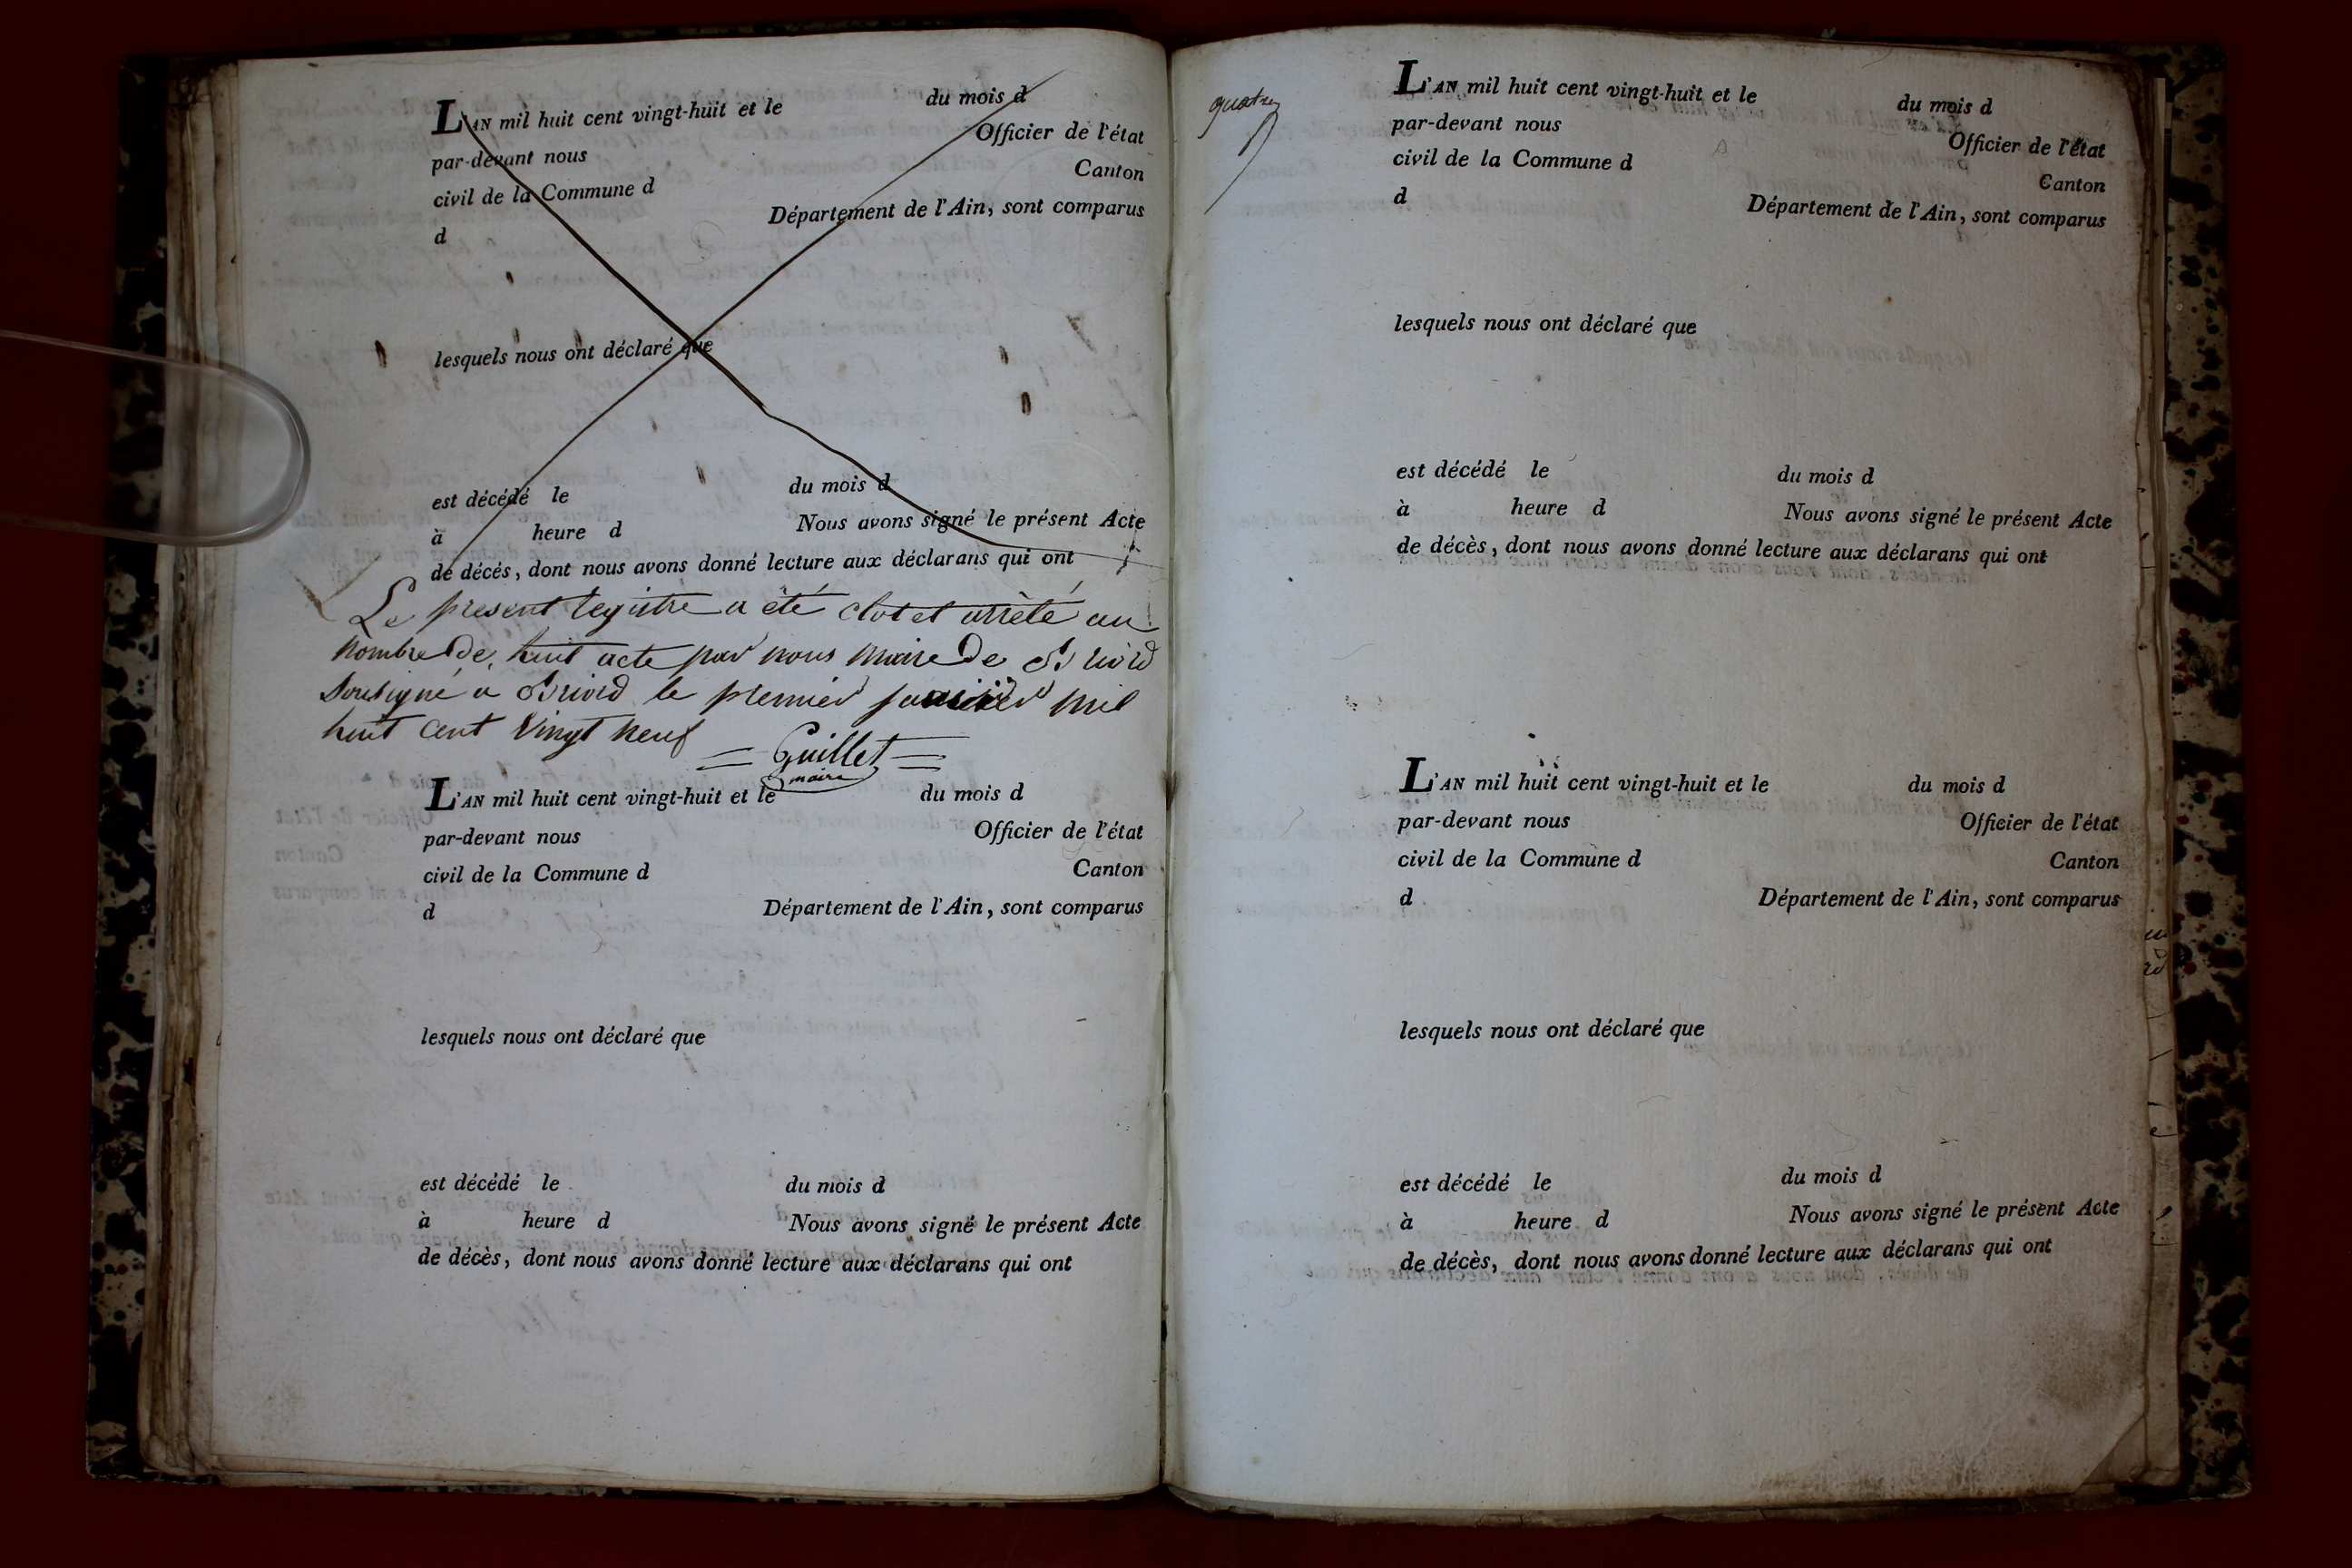 L'AN mil huit cent vingt-huit et le du mois d
par-devant nous Officier de l'état
civil de la Commune d Canton
d Département de l'Ain, sont comparus
lesquels nous ont déclaré que
est décédé le du mois d
à heure d Nous avons signé le présent Acte
de décés, dont nous avons donné lecture aux déclarans qui ont
Le present registre a été clot et arrêté au
nombre de huit acte par nous maire de Briord
Soussigné a Briord le premier janvier mil
huit cent vingt neuf
Guillet
maire
L'AN mil huit cent vingt-huit et le du mois d
par-devant nous Officier de l'état
civil de la Commune d Canton
d Département de l'Ain, sont comparus
lesquels nous ont déclaré que
est décédé le du mois d
à heure d Nous avons signé le présent Acte
de décès, dont nous avons donné lecture aux déclarans qui ont
quatre
L'AN mil huit cent vingt-huit et le du mois d
par-devant nous Officier de l'état
civil de la Commune d Canton
d Département de l'Ain, sont comparus
lesquels nous ont déclaré que
est décédé le du mois d
à heure d Nous avons signé le présent Acte
de décès, dont nous avons donné lecture aux déclarans qui ont
L'AN mil huit cent vingt-huit et le du mois d
par-devant nous Officier de l'état
civil de la Commune d Canton
d Département de l'Ain, sont comparus
lesquels nous ont déclaré que
est décédé le du mois d
à heure d Nous avons signé le présent Acte
de décès, dont nous avons donné lecture aux déclarans qui ont